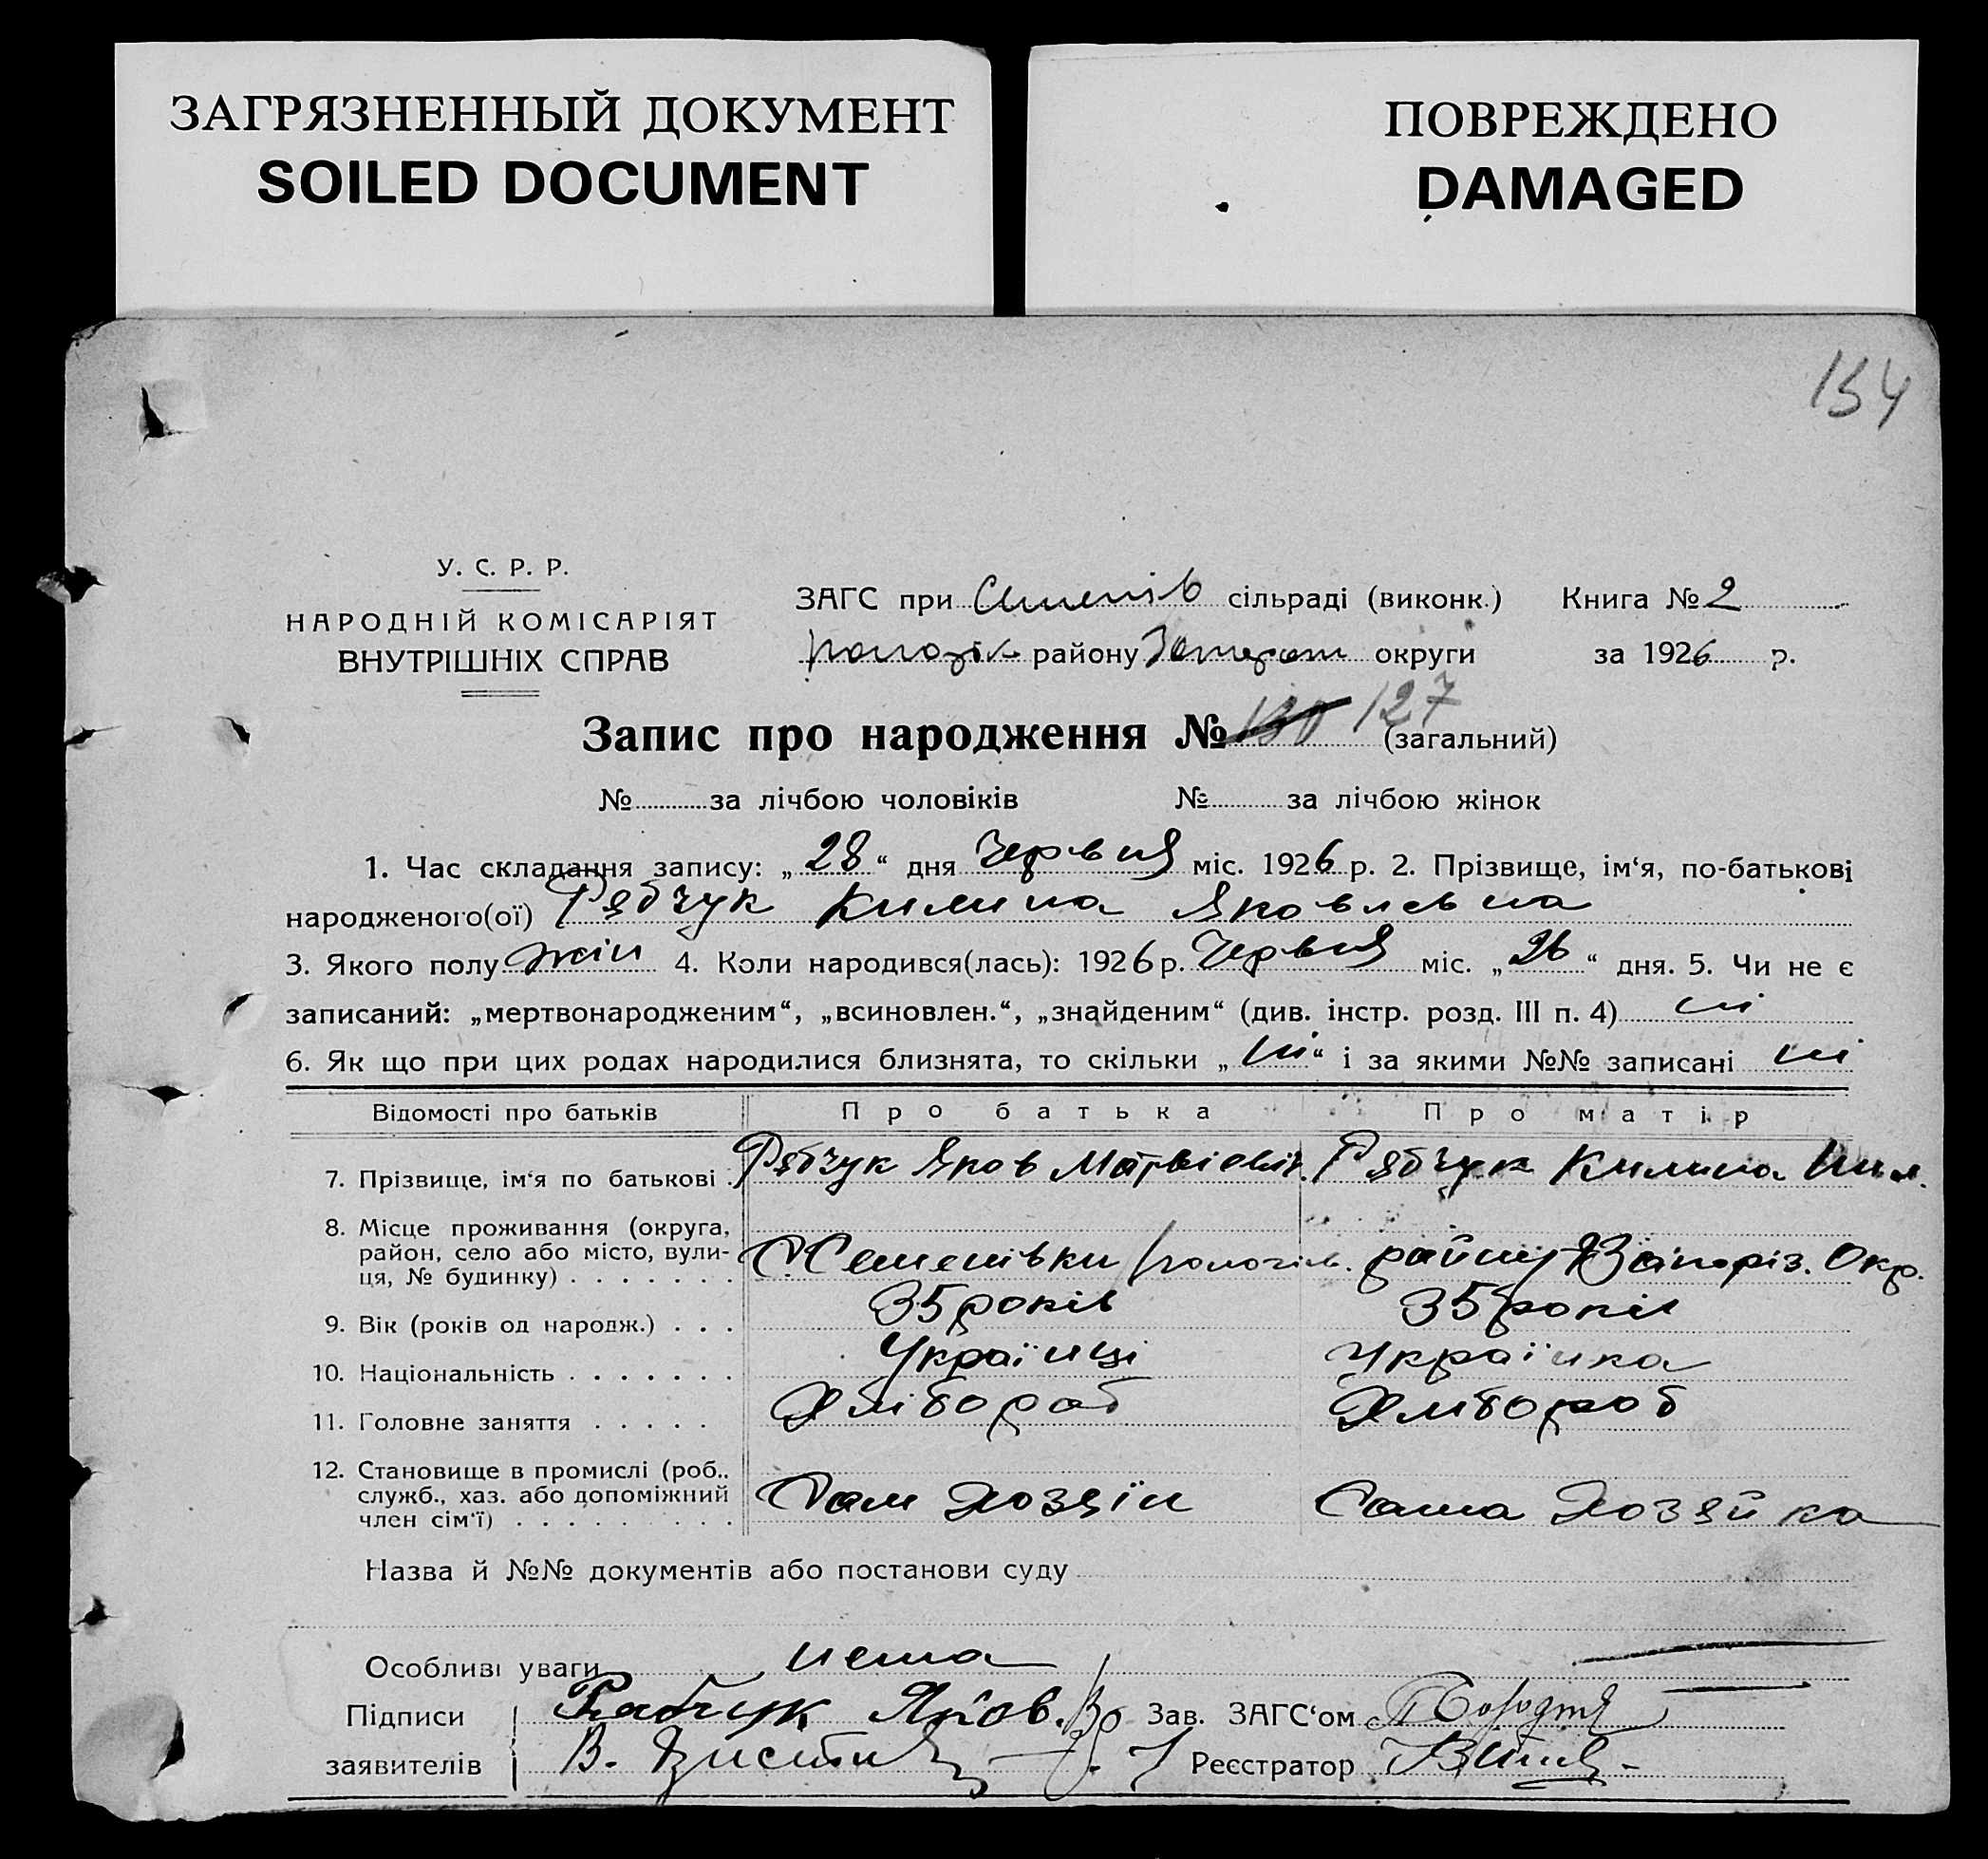 ЗАГРЯЗНЕННЫЙ ДОКУМЕНТ
SOILED DOCUMENT
ПОВРЕЖДЕНО
DAMAGED
134
У. С. Р. Р.
НАРОДНІЙ КОМІСАРІЯТ
ВНУТРІШНІХ СПРАВ
ЗАГС при сільраді (виконк.) Книга № 2
району округи за 1926 р.
Запис про народження № 130 127 (загальний)
№ за лічбою чоловіків № за лічбою жінок
1. Час складання запису: „28“ дня Червня міс. 1926 р. 2. Прізвище, ім‘я, по-батькові
народженого(ої) Рябчук Килина Яковлевна
3. Якого полу жін 4. Коли народився(лась): 1926 р. Червня міс. „26“ дня. 5. Чи не є
записаний: „мертвонародженим“, „всиновлен.“, „знайденим“ (див. інстр. розд. III п. 4) ні
6. Як що при цих родах народилися близнята, то скільки „ні“ і за якими №№ записані ні
Відомості про батьків Про батька Про матір
7. Прізвище, ім‘я по батькові . Рябчук Яков Матвієвич. Рябчук Килина
8. Місце проживання (округа,
район, село або місто, вули-
ця, № будинку) . . . . . . . С. Семенівки Пологів. району Запоріз. Окр.
9. Вік (років од народж.) . . . 35 років 35 років
10. Національність . . . . . . . Українці Українка
11. Головне заняття . . . . . Хлібороб Хлібороб
12. Становище в промислі (роб.,
служб., хаз. або допоміжний
член сім‘ї) . . . . . . . . . Сам Хозяїн Сама Хозяйка
Назва й №№ документів або постанови суду
Особливі уваги нема
Підписи Рабчук Яков. Зав. ЗАГС‘ом
заявителів В. Реєстратор